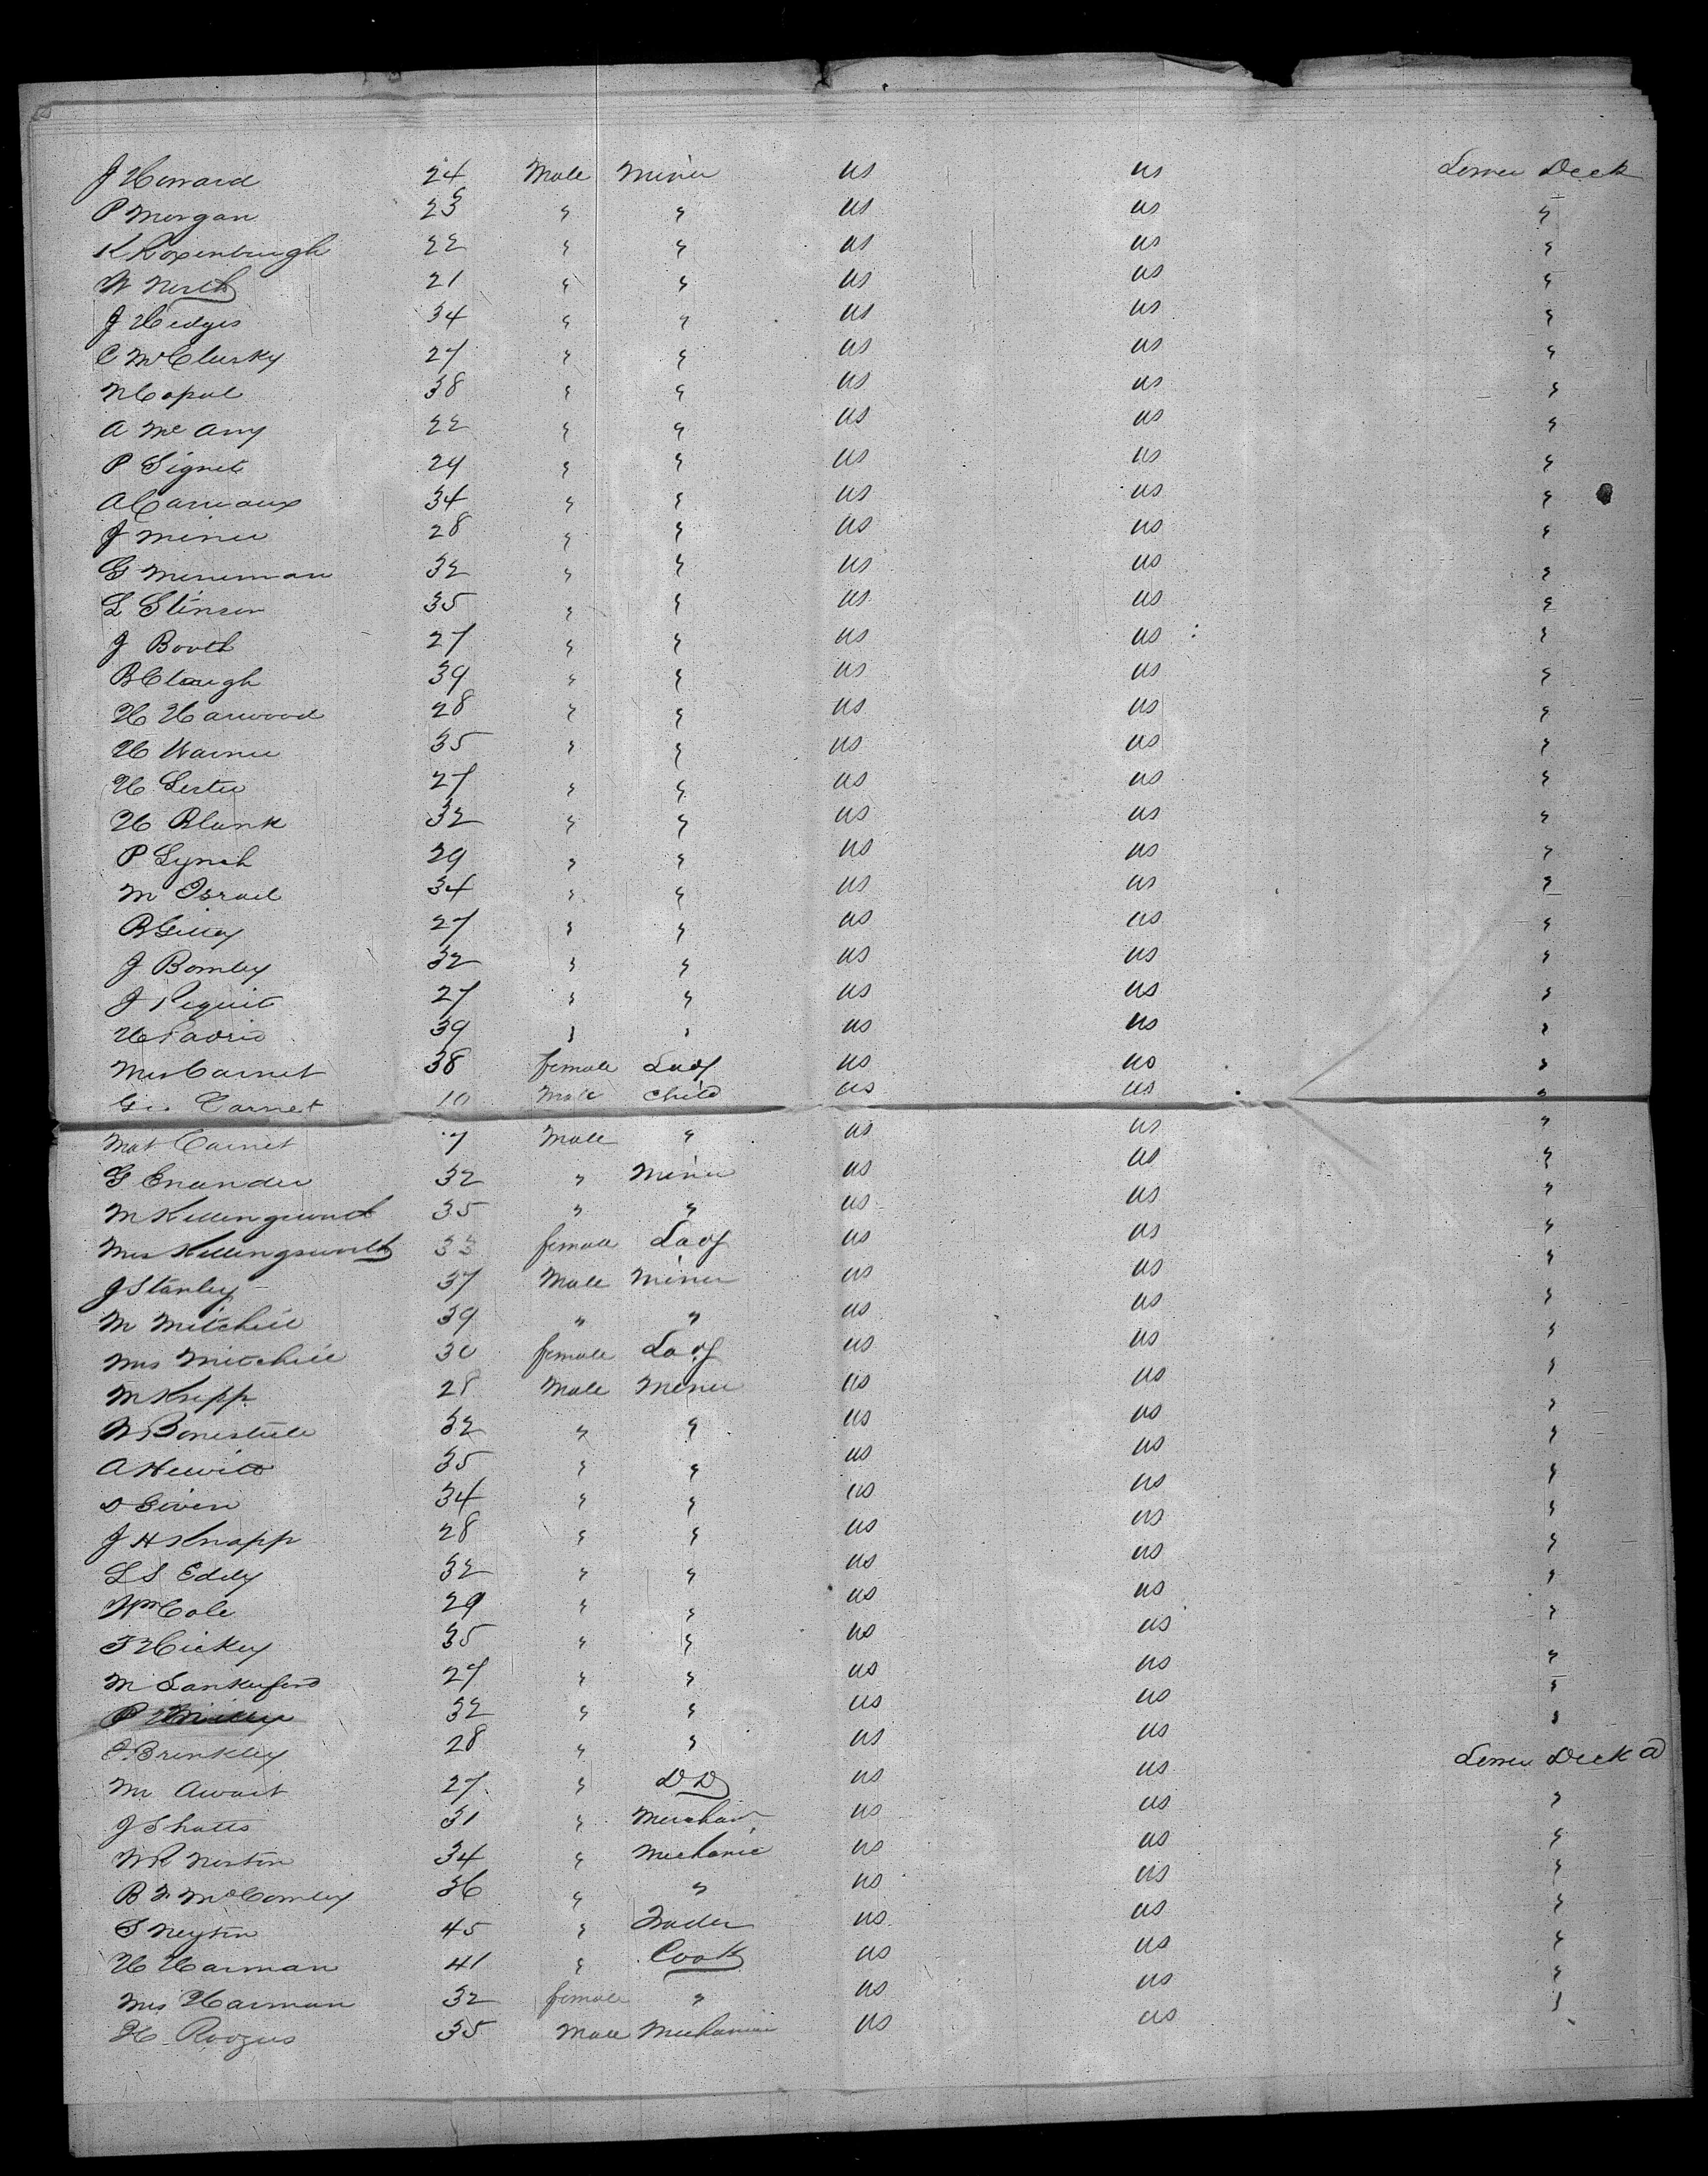 J Howard 24 Male Miner US US Lower Deck
P Morgan 23 " " US US "
K Roxenbrugh 22 " " US US "
W North 21 " " US US "
J Hedges 34 " " US US "
C McClusky 27 " " US US "
N Copul 38 " " US US "
A Mc Any 22 " " US US "
P Signet 24 " " US US "
A Carneaux 34 " " US US "
J Miner 28 " " US US "
G Merriman 32 " " US US "
L Stinson 35 " " US US "
J Booth 27 " " US US "
B Claugh 39 " " US US "
H Harwood 28 " " US US "
H Warner 35 " " US US "
H Lester 27 " " US US "
H Blank 32 " " US US "
P Lynch 29 " " US US "
M Israel 34 " " US US "
B Gilley 27 " " US US "
J Bomley 32 " " US US "
J Pequit 27 " " US US "
H 39 " " US US "
Mrs Carnet 38 female Lady US US "
Geo Carnet 10 Male Child US US "
Mat Carnet 7 Male " US US "
G Enander 32 " Miner US US "
M Killingsworth 35 " " US US "
Mrs Killingsworth 33 female Lady US US "
J Stanley 37 Male Miner US US "
M Mitchell 39 " " US US "
Mrs Mitchell 30 female Lady US US "
M Knipp 28 Male Miner US US "
N Bonesteele 32 " " US US "
A Hewitt 35 " " US US "
D Given 34 " " US US "
J H Knapp 28 " " US US "
L S Eddy 32 " " US US "
Wm Cole 29 " " US US "
T Hickey 35 " " US US "
M Lankerford 27 " " US US "
P 32 " " US US "
J Brinkley 28 " " US US "
Mr Awart 27 " DD US US Lower Deck a
J Shatts 31 " Merchant US US "
W R Norton 34 " Mechanic US US "
B W McComley 36 " " US US "
S Neyton 45 " Trader US US "
H Harman 41 " Cook US US "
Mrs Harman 32 female " US US "
H Roogus 35 Male Mechanic US US "